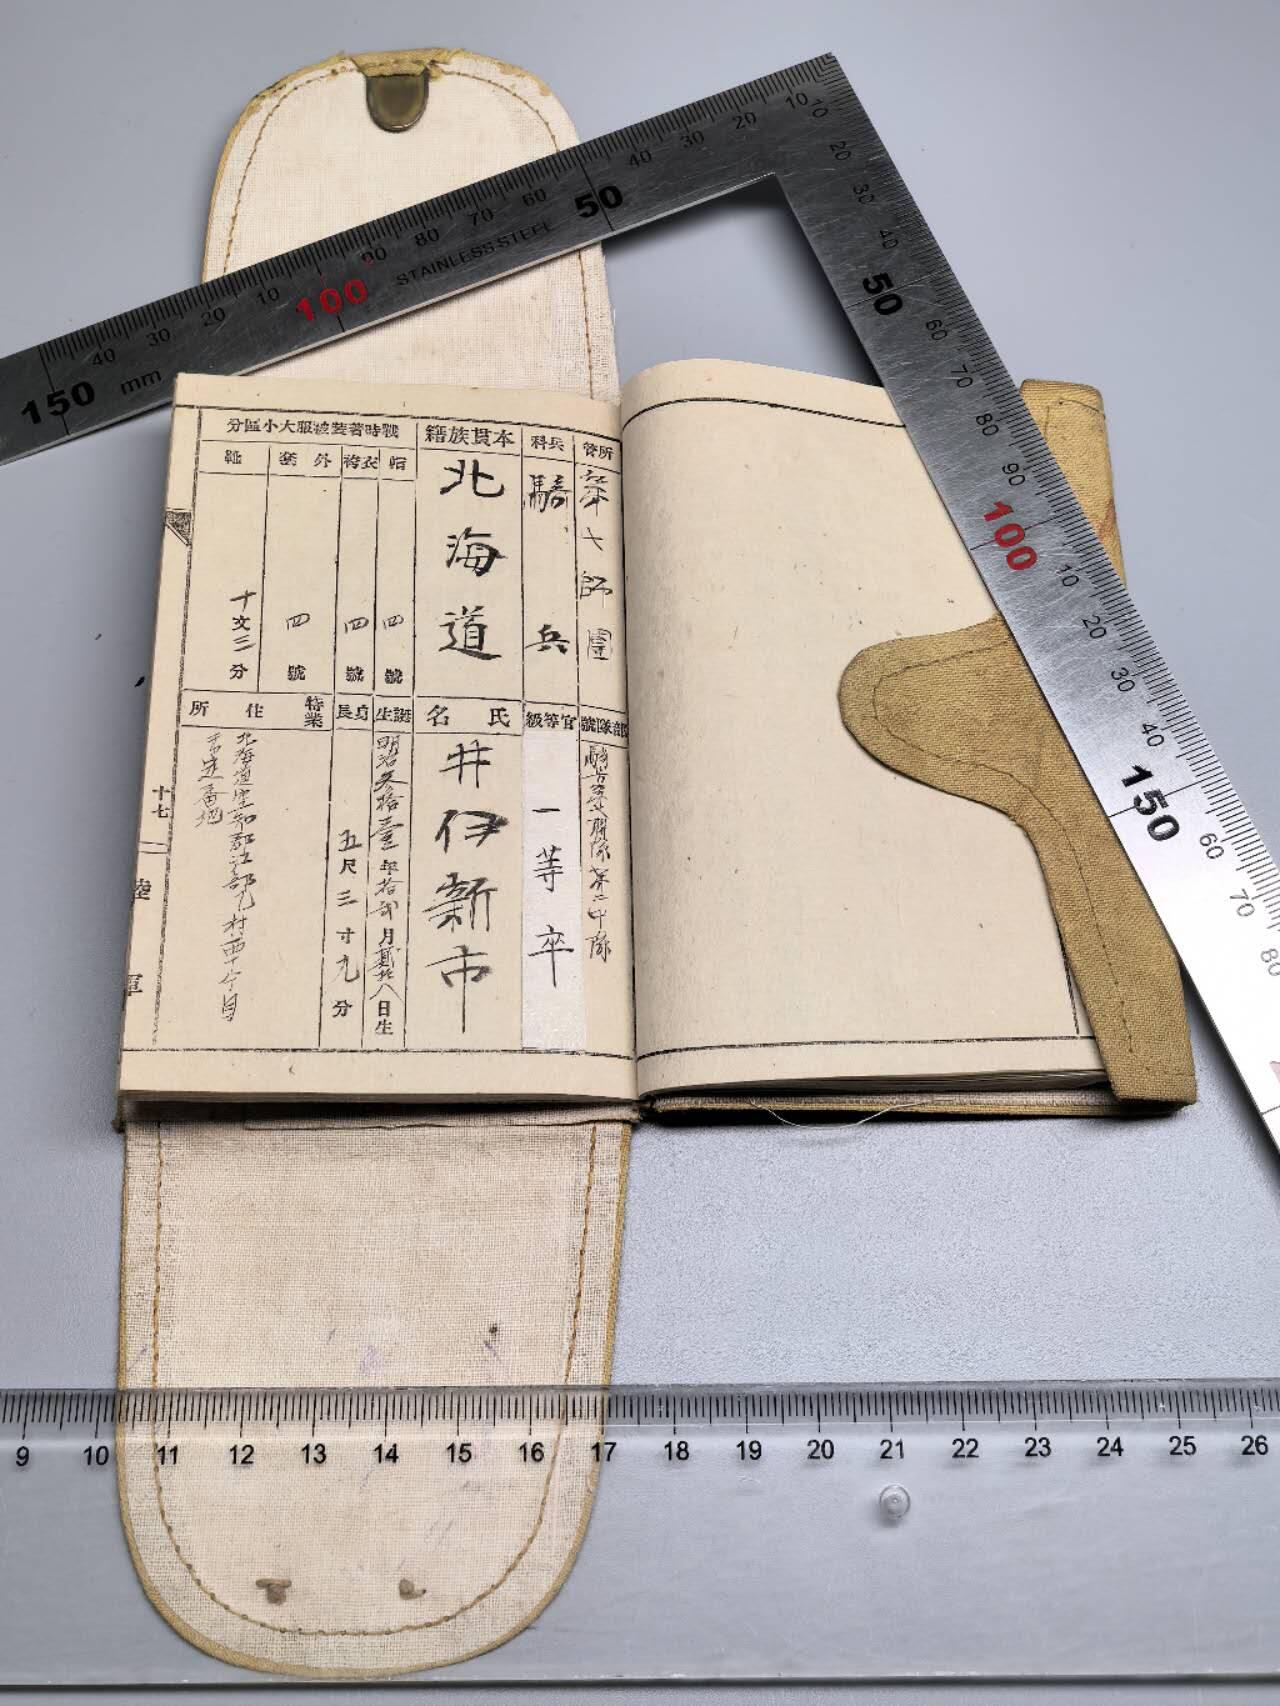 所管
第七師團
部隊號
騎兵第七聯隊第二中隊
兵科
騎兵
官等級
一等卒
本貫族籍
北海道
氏名
井伊新市
戰時著裝被服大小區分
帽
四號
衣袴
四號
外套
四號
靴
十文三分
誕生
明治參拾壹年拾貳月貳拾八日生
身長
五尺三寸九分
特業
住所
北海道空知郡江部乙村西十丁目
番地
十七
陸軍
150 mm
40 30 20 10
100
90 80 70 60
STAINLESS STEEL
50
40 30 20 10
10 20 30 40
50
60 70 80 90
100
10 20 30 40
150
60 70 80
9 10 11 12 13 14 15 16 17 18 19 20 21 22 23 24 25 26